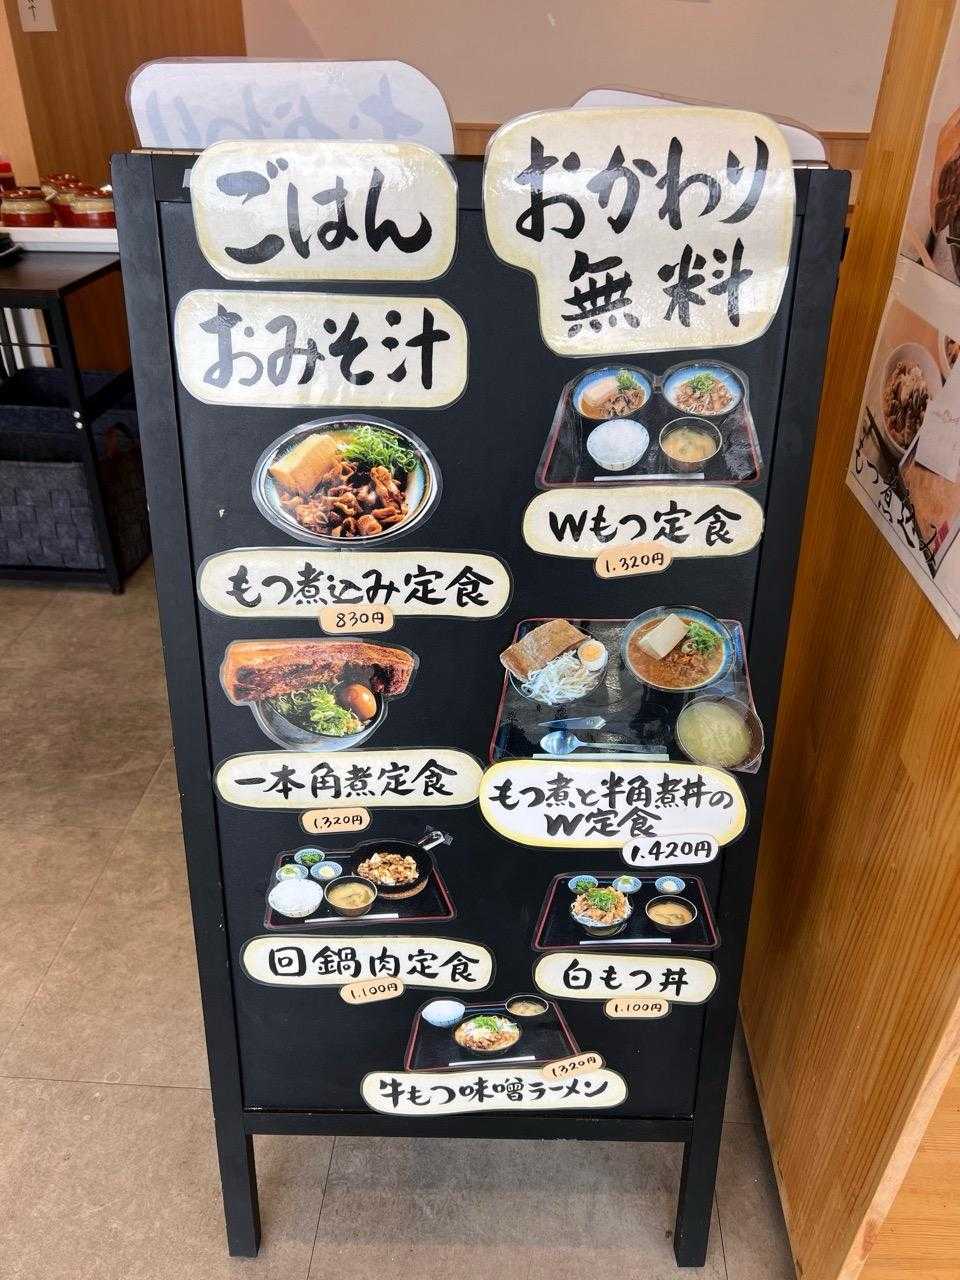 ごはん
おみそ汁
おかわり
無料
もつ煮込み定食
830円
Wもつ定食
1.320円
一本角煮定食
1.320円
もつ煮と半角煮丼の
W定食
1.420円
回鍋肉定食
1.100円
白もつ丼
1.100円
牛もつ味噌ラーメン
1.320円
もつ煮や